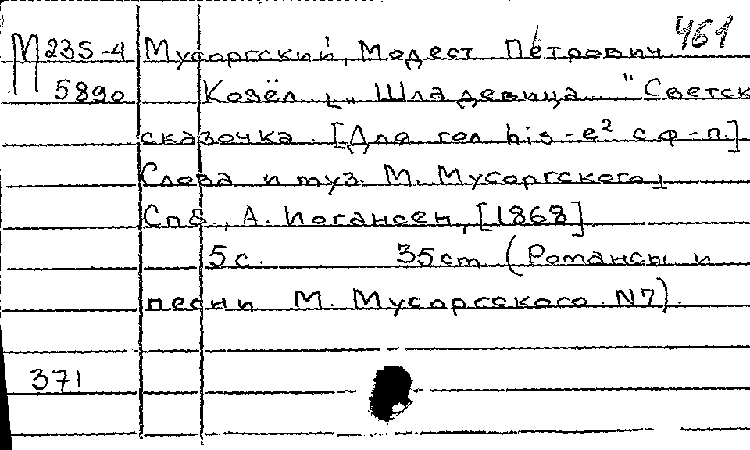 461
М 235-4 Мусоргский, Модест Петрович
5890 Козёл „Шла девица.." Светск
сказочка. [Для гол. his-e² с ф-п.]
Слова и муз. М. Мусоргского.
Спб., А. Иогансен, [1868]
5 с. 35 cm (Романсы и
песни М. Мусоргского. N7).
371